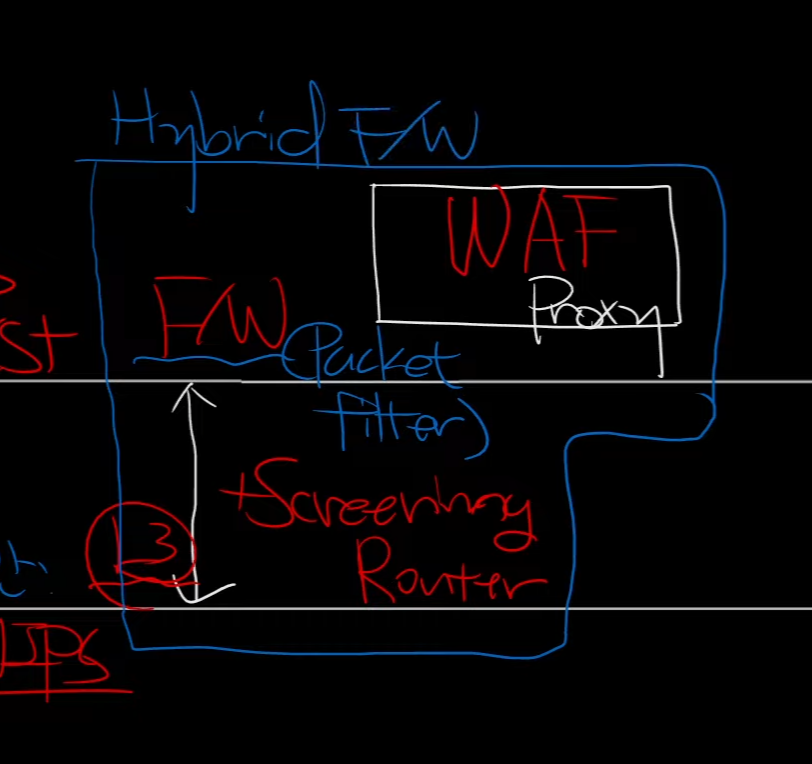 Hybrid F/W
WAF
Proxy
F/W
(Packet
filter)
st
+Screening
Router
L3
IPS